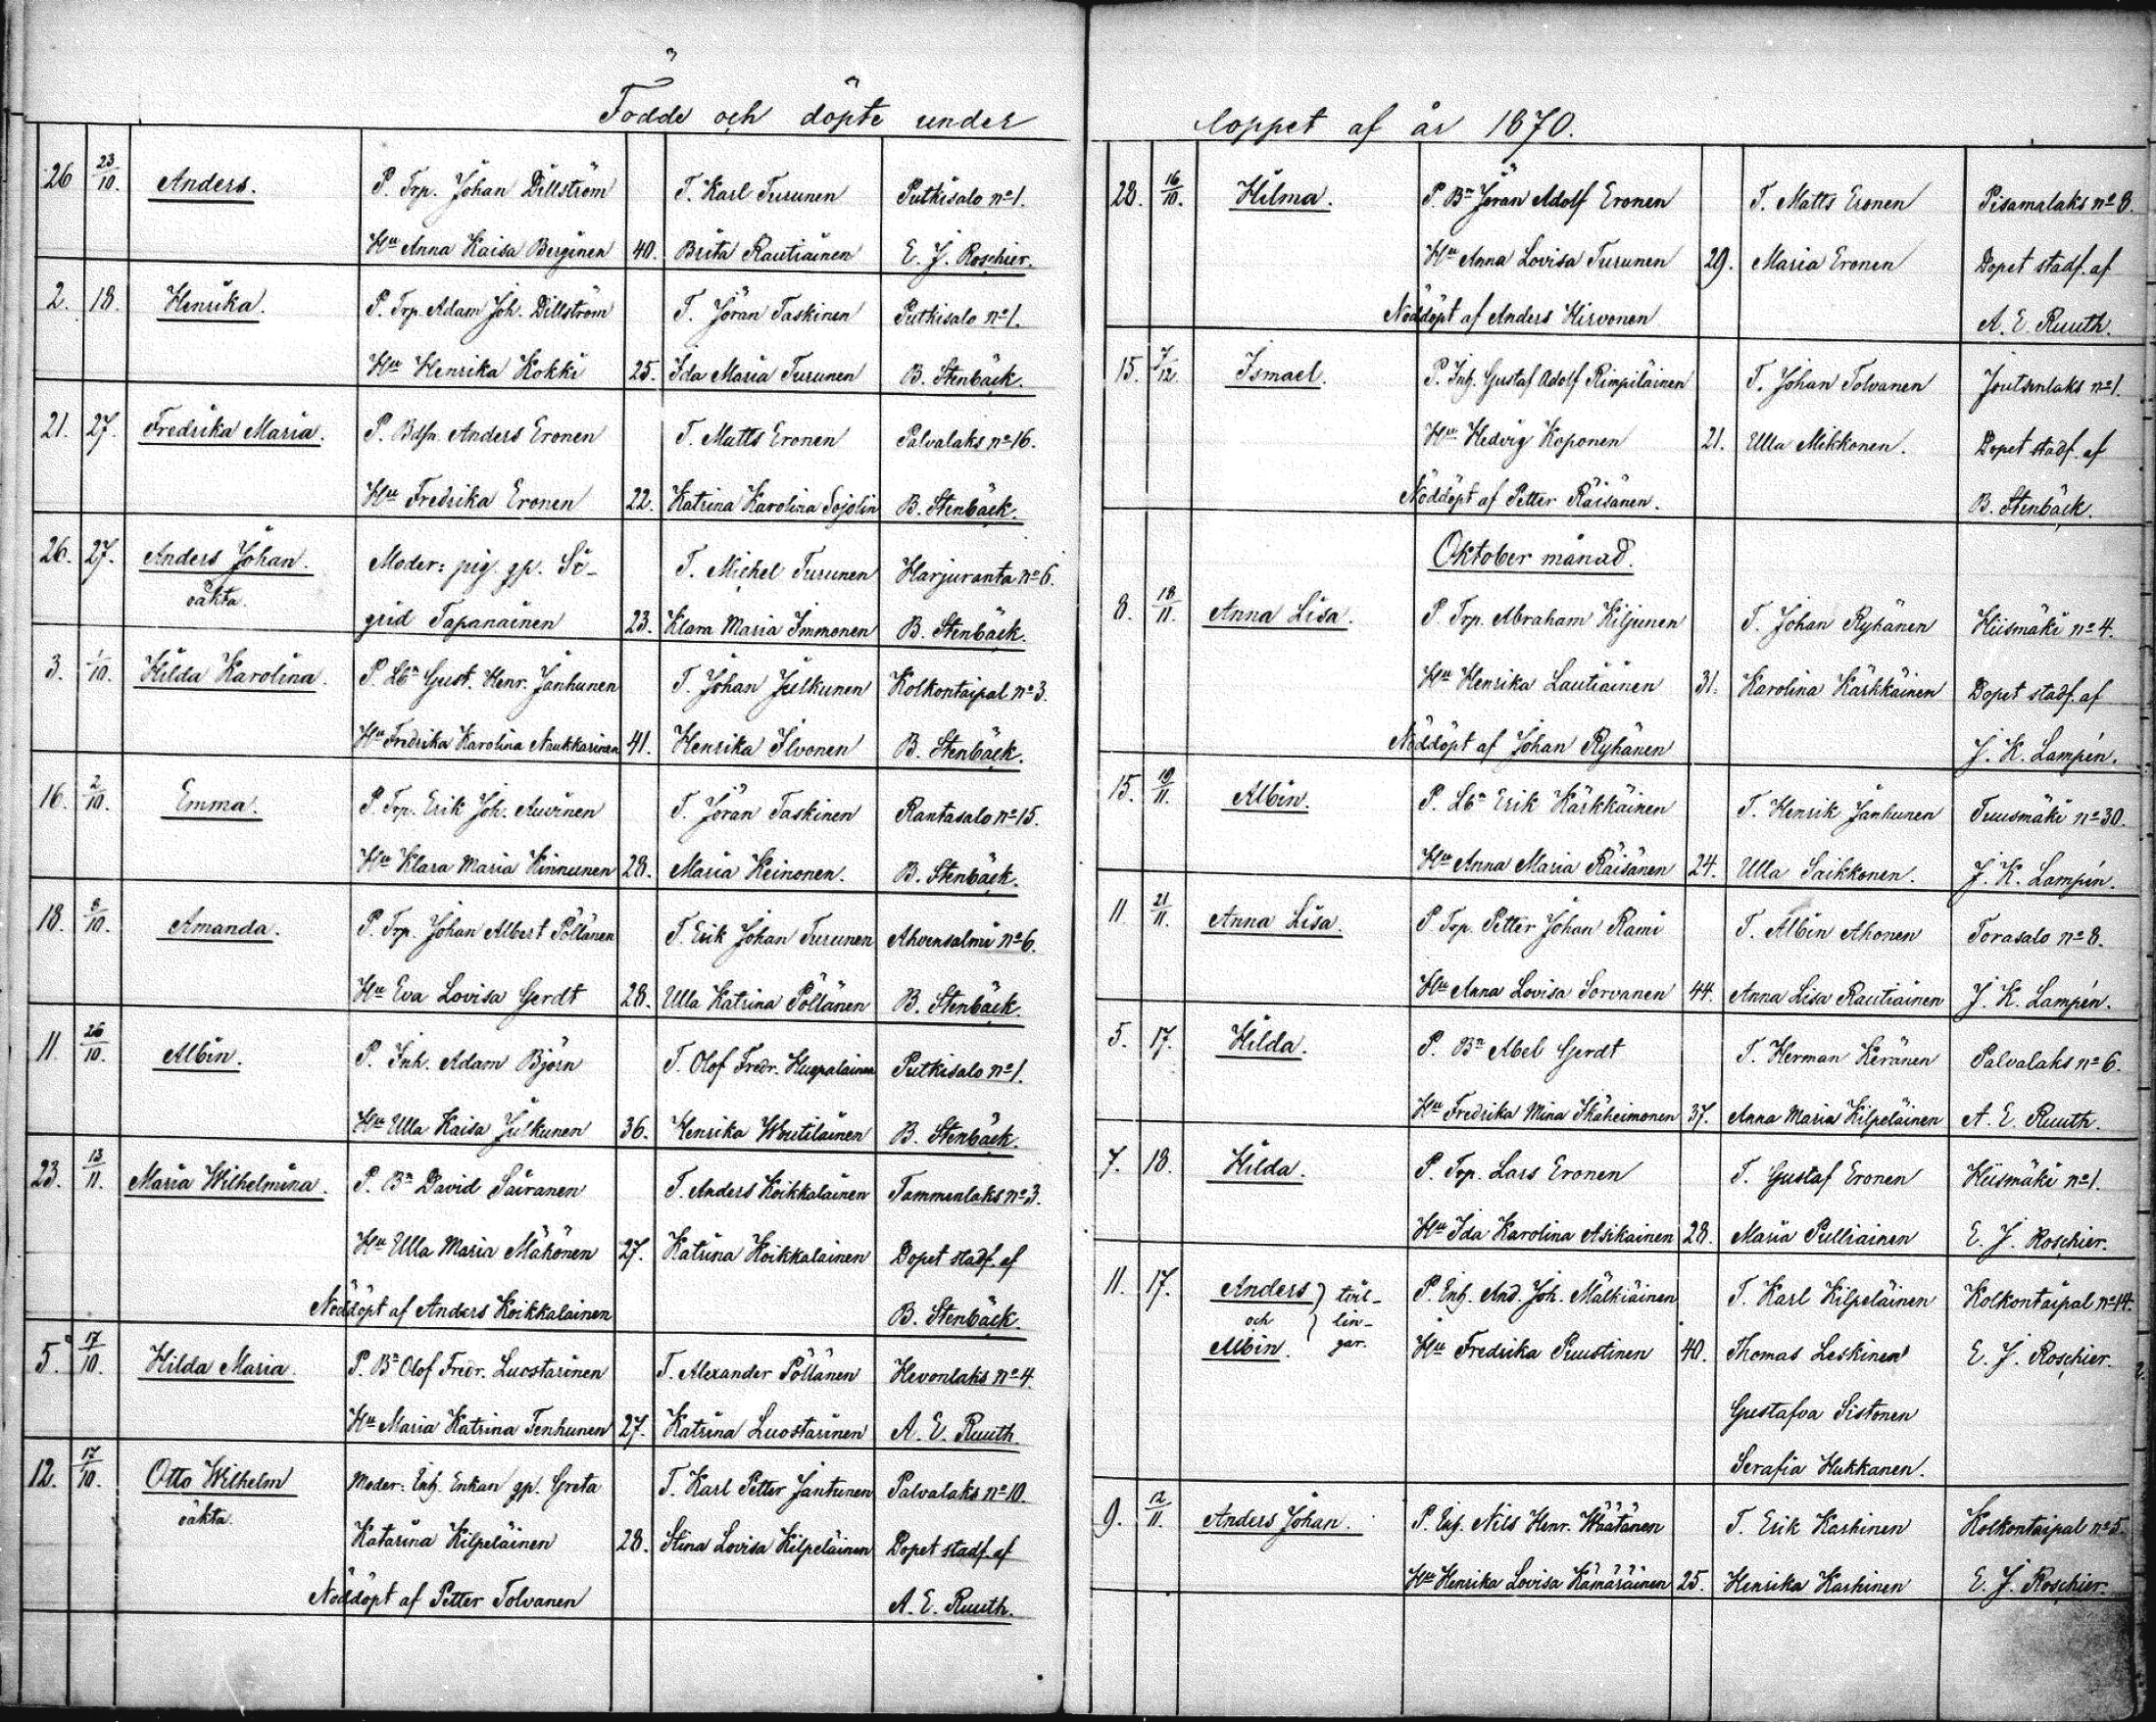 Födde och döpte under
26 23/10. Anders. P. Trp. Johan Dillström T. Karl Turunen Putkisalo no 1.
Hu Anna Kaisa Berginen 40. Brita Rautiainen E. J. Roschier.
2. 18. Henrika. P. Trp. Adam Joh. Dillström T. Jöran Taskinen Putkisalo no 1.
Hu Henrika Kokki 25. Ida Maria Turunen B. Stenbäck.
21. 27. Fredrika Maria. P. Bdsn. Anders Eronen T. Matts Eronen Palvalaks no 16.
Hu Fredrika Eronen 22. Katrina Karolina Sojolin B. Stenbäck.
26. 27. Anders Johan. Moder: pig. gp. Si- T. Michel Turunen Harjuranta no 6.
oäkta. grid Tapanainen 23. Klara Maria Immonen B. Stenbäck.
3. 1/10. Hilda Karolina. P. Lbn Gust. Henr. Janhunen T. Johan Julkunen Kolkontaipal no 3.
Hu Fredrika Karolina Naukkarinen 41. Henrika Ilvonen B. Stenbäck.
16. 2/10. Emma. P. Trp. Erik Joh. Auvinen T. Jöran Taskinen Rantasalo no 15.
Hu Klara Maria Kinnunen 28. Maria Keinonen. B. Stenbäck.
18. 8/10. Amanda. P. Trp. Johan Albert Pöllänen T. Erik Johan Turunen Ahvensalmi no 6.
Hu Eva Lovisa Gerdt 28. Ulla Katrina Pöllänen B. Stenbäck.
11. 26/10. Albin. P. Inh. Adam Björn T. Olof Fredr. Huppalainen Putkisalo no 1.
Hu Ulla Kaisa Julkunen 36. Henrika Woutilainen B. Stenbäck.
23. 13/11. Maria Wilhelmina. P. Bn David Sairanen T. Anders Koikkalainen Tammenlaks no 3.
Hu Ulla Maria Mähönen 27. Katrina Koikkalainen Dopet stadf. af
Nöddöpt af Anders Koikkalainen B. Stenbäck.
5. 17/10. Hilda Maria. P. Bn Olof Fredr. Luostarinen T. Alexander Pöllänen Hevonlaks no 4.
Hu Maria Katrina Tenhunen 27. Katrina Luostarinen A. E. Ruuth.
12. 17/10. Otto Wilhelm Moder: Inh. Enkan gp. Greta T. Karl Petter Jantunen Palvalaks no 10.
oäkta. Katarina Kilpeläinen 28. Stina Lovisa Kilpeläinen Dopet stadf. af
Nöddöpt af Petter Tolvanen A. E. Ruuth.
loppet af år 1870.
28. 16/10. Hilma. P. Bn Jöran Adolf Eronen T. Matts Eronen Pisamalaks no 8.
Hu Anna Lovisa Turunen 29. Maria Eronen Dopet stadf. af
Nöddöpt af Anders Hirvonen A. E. Ruuth.
15. 7/12. Ismael. P. Inh. Gustaf Adolf Rimpiläinen T. Johan Tolvanen Joutsenlaks no 1.
Hu Hedvig Koponen 21. Ulla Mikkonen. Dopet stadf. af
Nöddöpt af Petter Räisänen. B. Stenbäck.
Oktober månad.
8. 18/11. Anna Lisa. P. Trp. Abraham Kiljunen T. Johan Ryhänen Hiismäki no 4.
Hu Henrika Lautiainen 31. Karolina Kärkkäinen Dopet stadf. af
Nöddöpt af Johan Ryhänen J. K. Lampén.
15. 19/11. Albin. P. Lbn Erik Kärkkäinen T. Henrik Janhunen Tuusmäki no 30.
Hu Anna Maria Räisänen 24. Ulla Saikkonen. J. K. Lampén.
11 21/11. Anna Lisa. P. Trp. Petter Johan Rami T. Albin Ahonen Torasalo no 8.
Hu Anna Lovisa Sorvanen 44. Anna Lisa Rautiainen J. K. Lampén.
5. 17. Hilda. P. Bn Abel Gerdt T. Herman Keränen Palvalaks no 6.
Hu Fredrika Mina Ikäheimonen 37. Anna Maria Kilpeläinen A. E. Ruuth.
7. 18. Hilda. P. Trp. Lars Eronen T. Gustaf Eronen Hiismäki no 1.
Hu Ida Karolina Asikainen 28. Maria Pulliainen E. J. Roschier.
11. 17. Anders tvil- P. Inh. And. Joh. Mälkiäinen T. Karl Kilpeläinen Kolkontaipal no 14.
och lin-
Albin. gar. Hu Fredrika Puustinen 40. Thomas Leskinen E. J. Roschier.
Gustafva Sistonen
Serafia Hukkanen.
9. 12/11. Anders Johan. P. Inh. Nils Henr. Wäätänen T. Erik Karhinen Kolkontaipal no 5.
Hu Henrika Lovisa Kämäräinen 25. Henrika Karhinen E. J. Roschier.